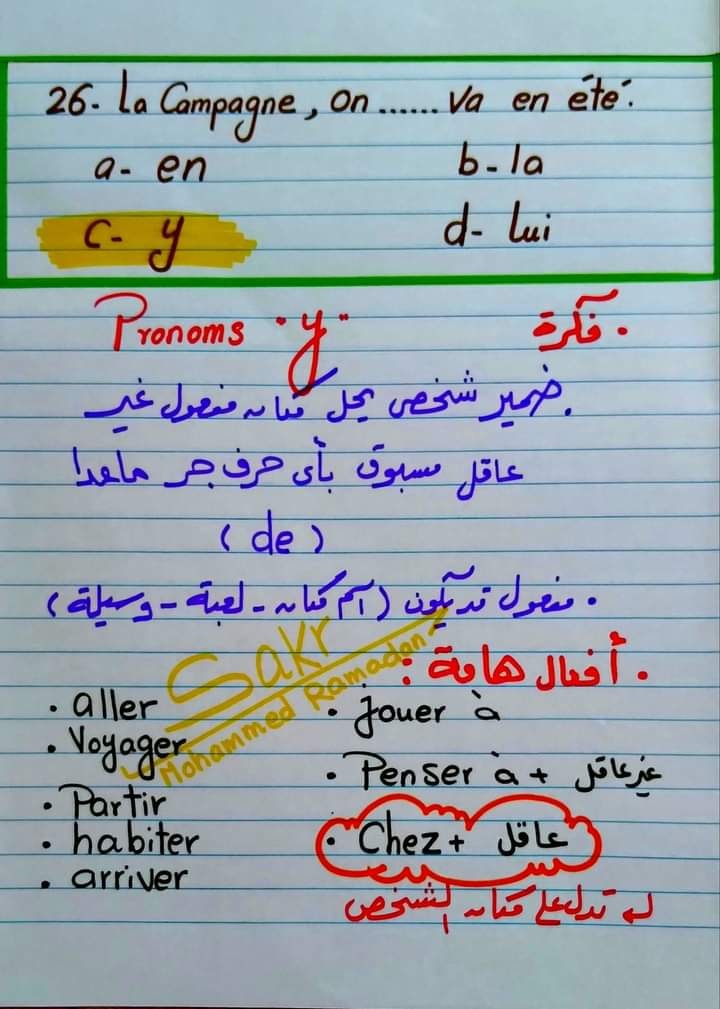 26- La Campagne, on ...... va en été.
a- en
b- la
c- y
d- lui
Pronoms "y"
• فكرة
. ضمير شخصى يحل مكان مفعول غير
عاقل مسبوق بأى حرف جر ماعدا
( de )
• مفعول قد يكون (اسم مكان - لعبة - وسيلة)
Sakr
Mohammed Ramadan
• أفعال هامة :
• aller
• Voyager
• Partir
• habiter
• arriver
• jouer à
• Penser à + غير عاقل
• Chez + عاقل
له تدل على مكان الشخص